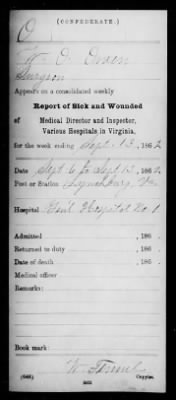 (CONFEDERATE.)
O
W. O. Owen
Surgeon
Appears on a consolidated weekly
Report of Sick and Wounded
of Medical Director and Inspector,
Various Hospitals in Virginia,
for the week ending Sept. 13, 1862
Date Sept 6 to Sept 13, 1862
Post or Station Lynchburg, Va
Hospital Genl Hospital No 1
Admitted , 186
Returned to duty , 186
Date of death , 186
Medical officer
Remarks:
Book mark:
W.
(646) Copyist.